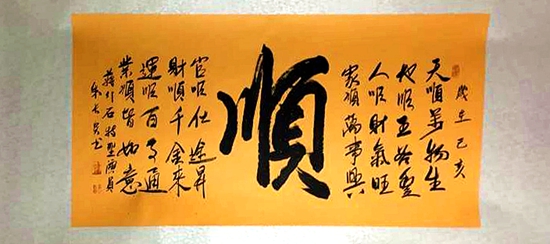 歲在己亥
天順萬物生
地順五谷豐
人順財氣旺
家順萬事興
順
官順仕途昇
財順千金來
運順百事通
業順皆如意
蔣介石特型演員
書